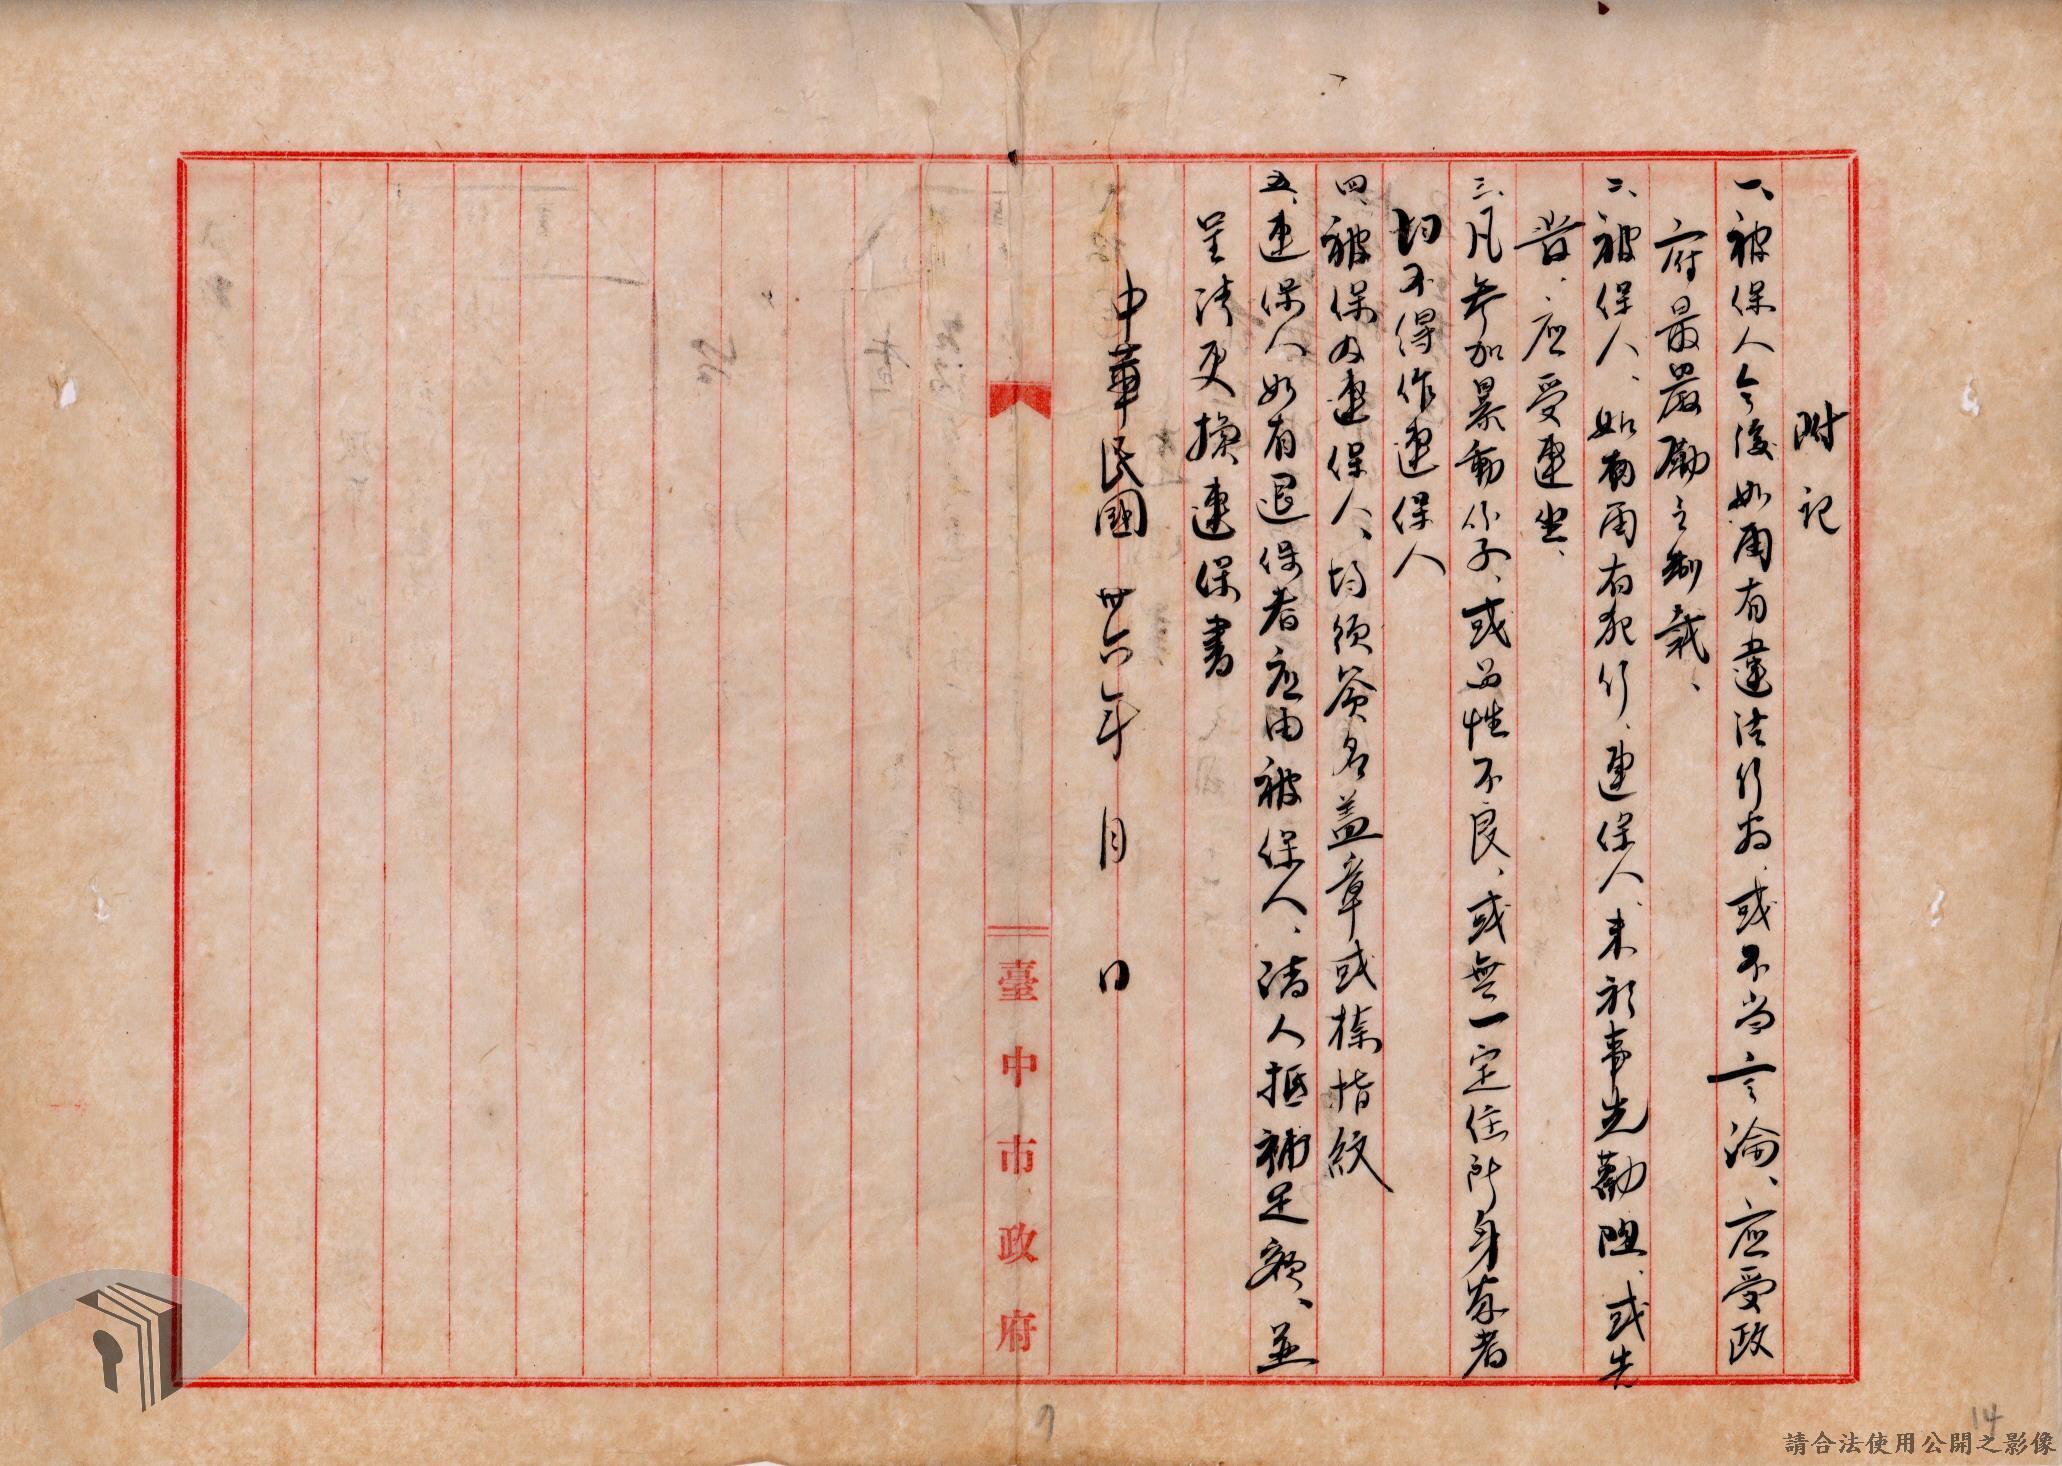 附記
一、被保人今後如再有違法行為、或不当言論、应受政
府最嚴勵之制裁、
二、被保人、如有再有犯行、連保人、未於事先勸阻、或先
告、应受連坐、
三、凡参加暴動分子、或品性不良、或無一定住所身家者
均不得作連保人
四、被保及連保人、均須簽名盖章或捺指紋
五、連保人如有退保者应由被保人、請人抵補足額、並
呈請更換連保書
中華民國卅六年 月 日
臺中市政府
9
14
請合法使用公開之影像